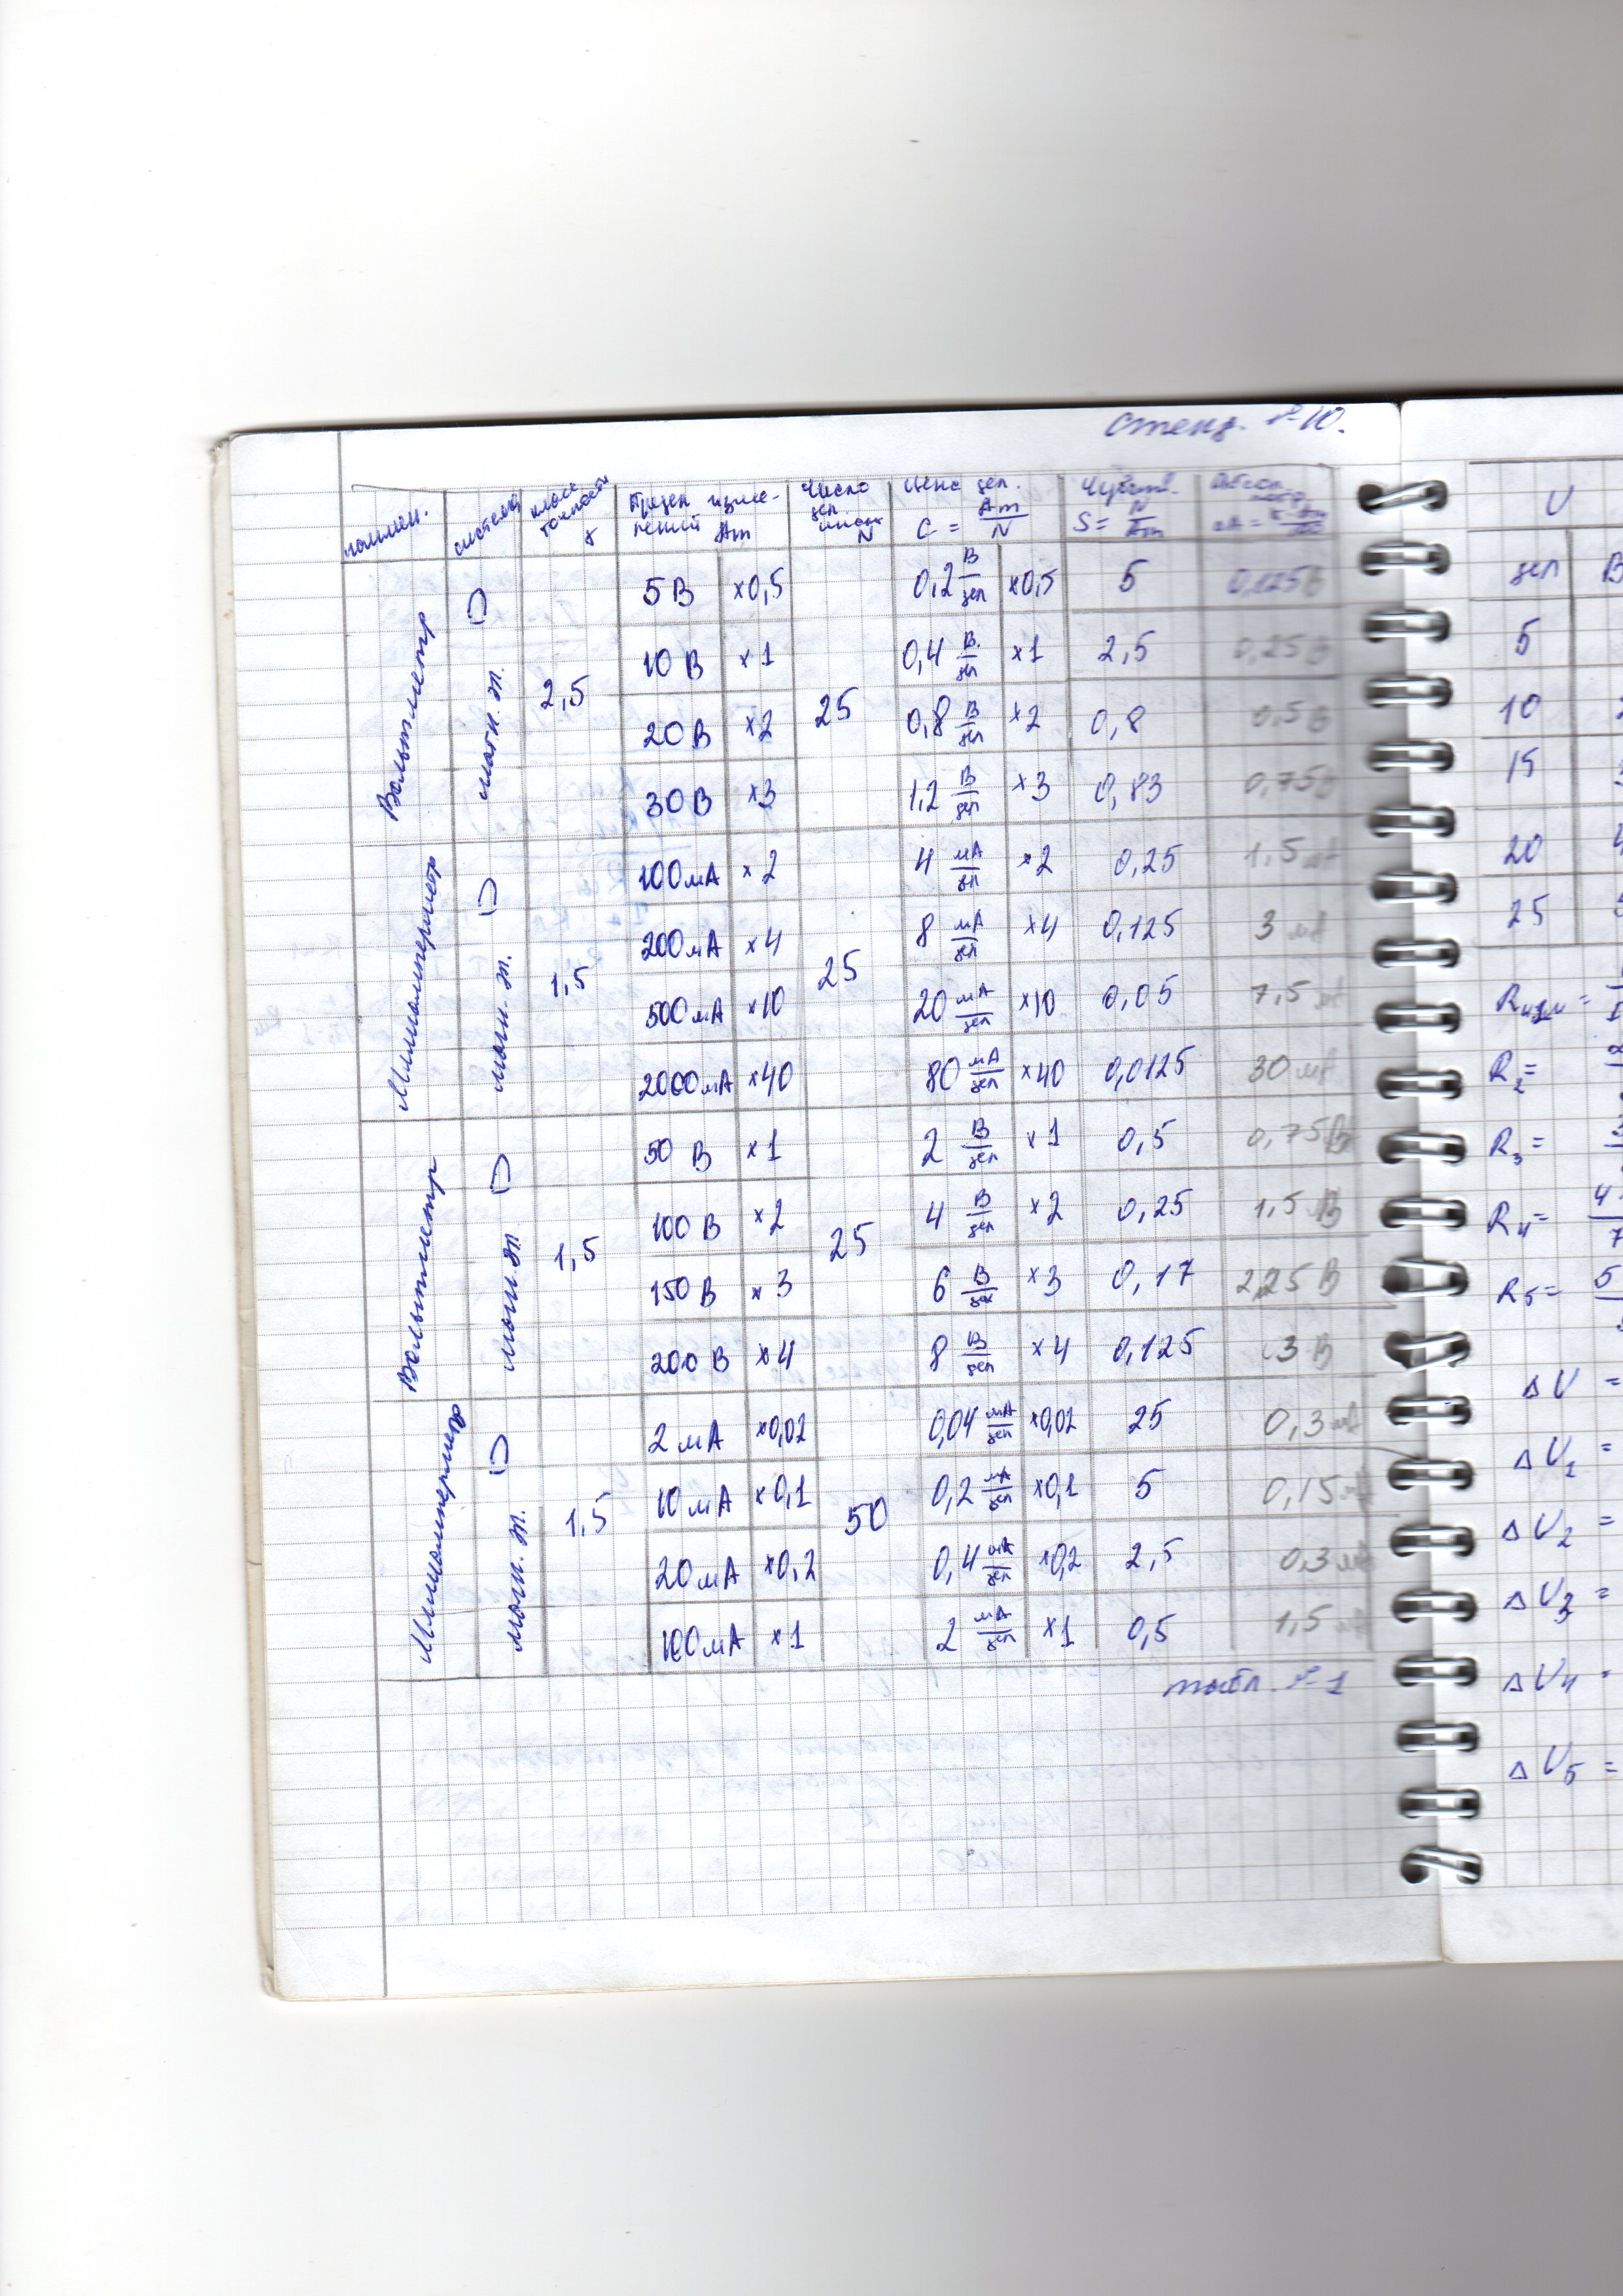 Стенд. № 10.
наимен. система класс точности γ Предел измерений Am Число дел. шкалы N Цена дел. C = Am/N Чувств. S = N/Am
Вольтметр магн. э. 2,5 25
5 В ×0,5 0,2 В/дел ×0,5 5 0,125 В
10 В ×1 0,4 В/дел ×1 2,5 0,25 В
20 В ×2 0,8 В/дел ×2 0,8 0,5 В
30 В ×3 1,2 В/дел ×3 0,83 0,75 В
Миллиамперметр магн. э. 1,5 25
100 мА ×2 4 мА/дел ×2 0,25 1,5 мА
200 мА ×4 8 мА/дел ×4 0,125 3 мА
500 мА ×10 20 мА/дел ×10 0,05 7,5 мА
2000 мА ×40 80 мА/дел ×40 0,0125 30 мА
Вольтметр магн. э. 1,5 25
50 В ×1 2 В/дел ×1 0,5 0,75 В
100 В ×2 4 В/дел ×2 0,25 1,5 В
150 В ×3 6 В/дел ×3 0,17 2,25 В
200 В ×4 8 В/дел ×4 0,125 3 В
Миллиамперметр магн. э. 1,5 50
2 мА ×0,02 0,04 мА/дел ×0,02 25 0,3 мА
10 мА ×0,1 0,2 мА/дел ×0,1 5 0,15 мА
20 мА ×0,2 0,4 мА/дел ×0,2 2,5 0,3 мА
100 мА ×1 2 мА/дел ×1 0,5 1,5 мА
табл. № 1
U
дел В
5
10
15
20
25
Rизм =
R2 =
R3 =
R4 =
R5 =
ΔU =
ΔU1 =
ΔU2 =
ΔU3 =
ΔU4
ΔU5 =